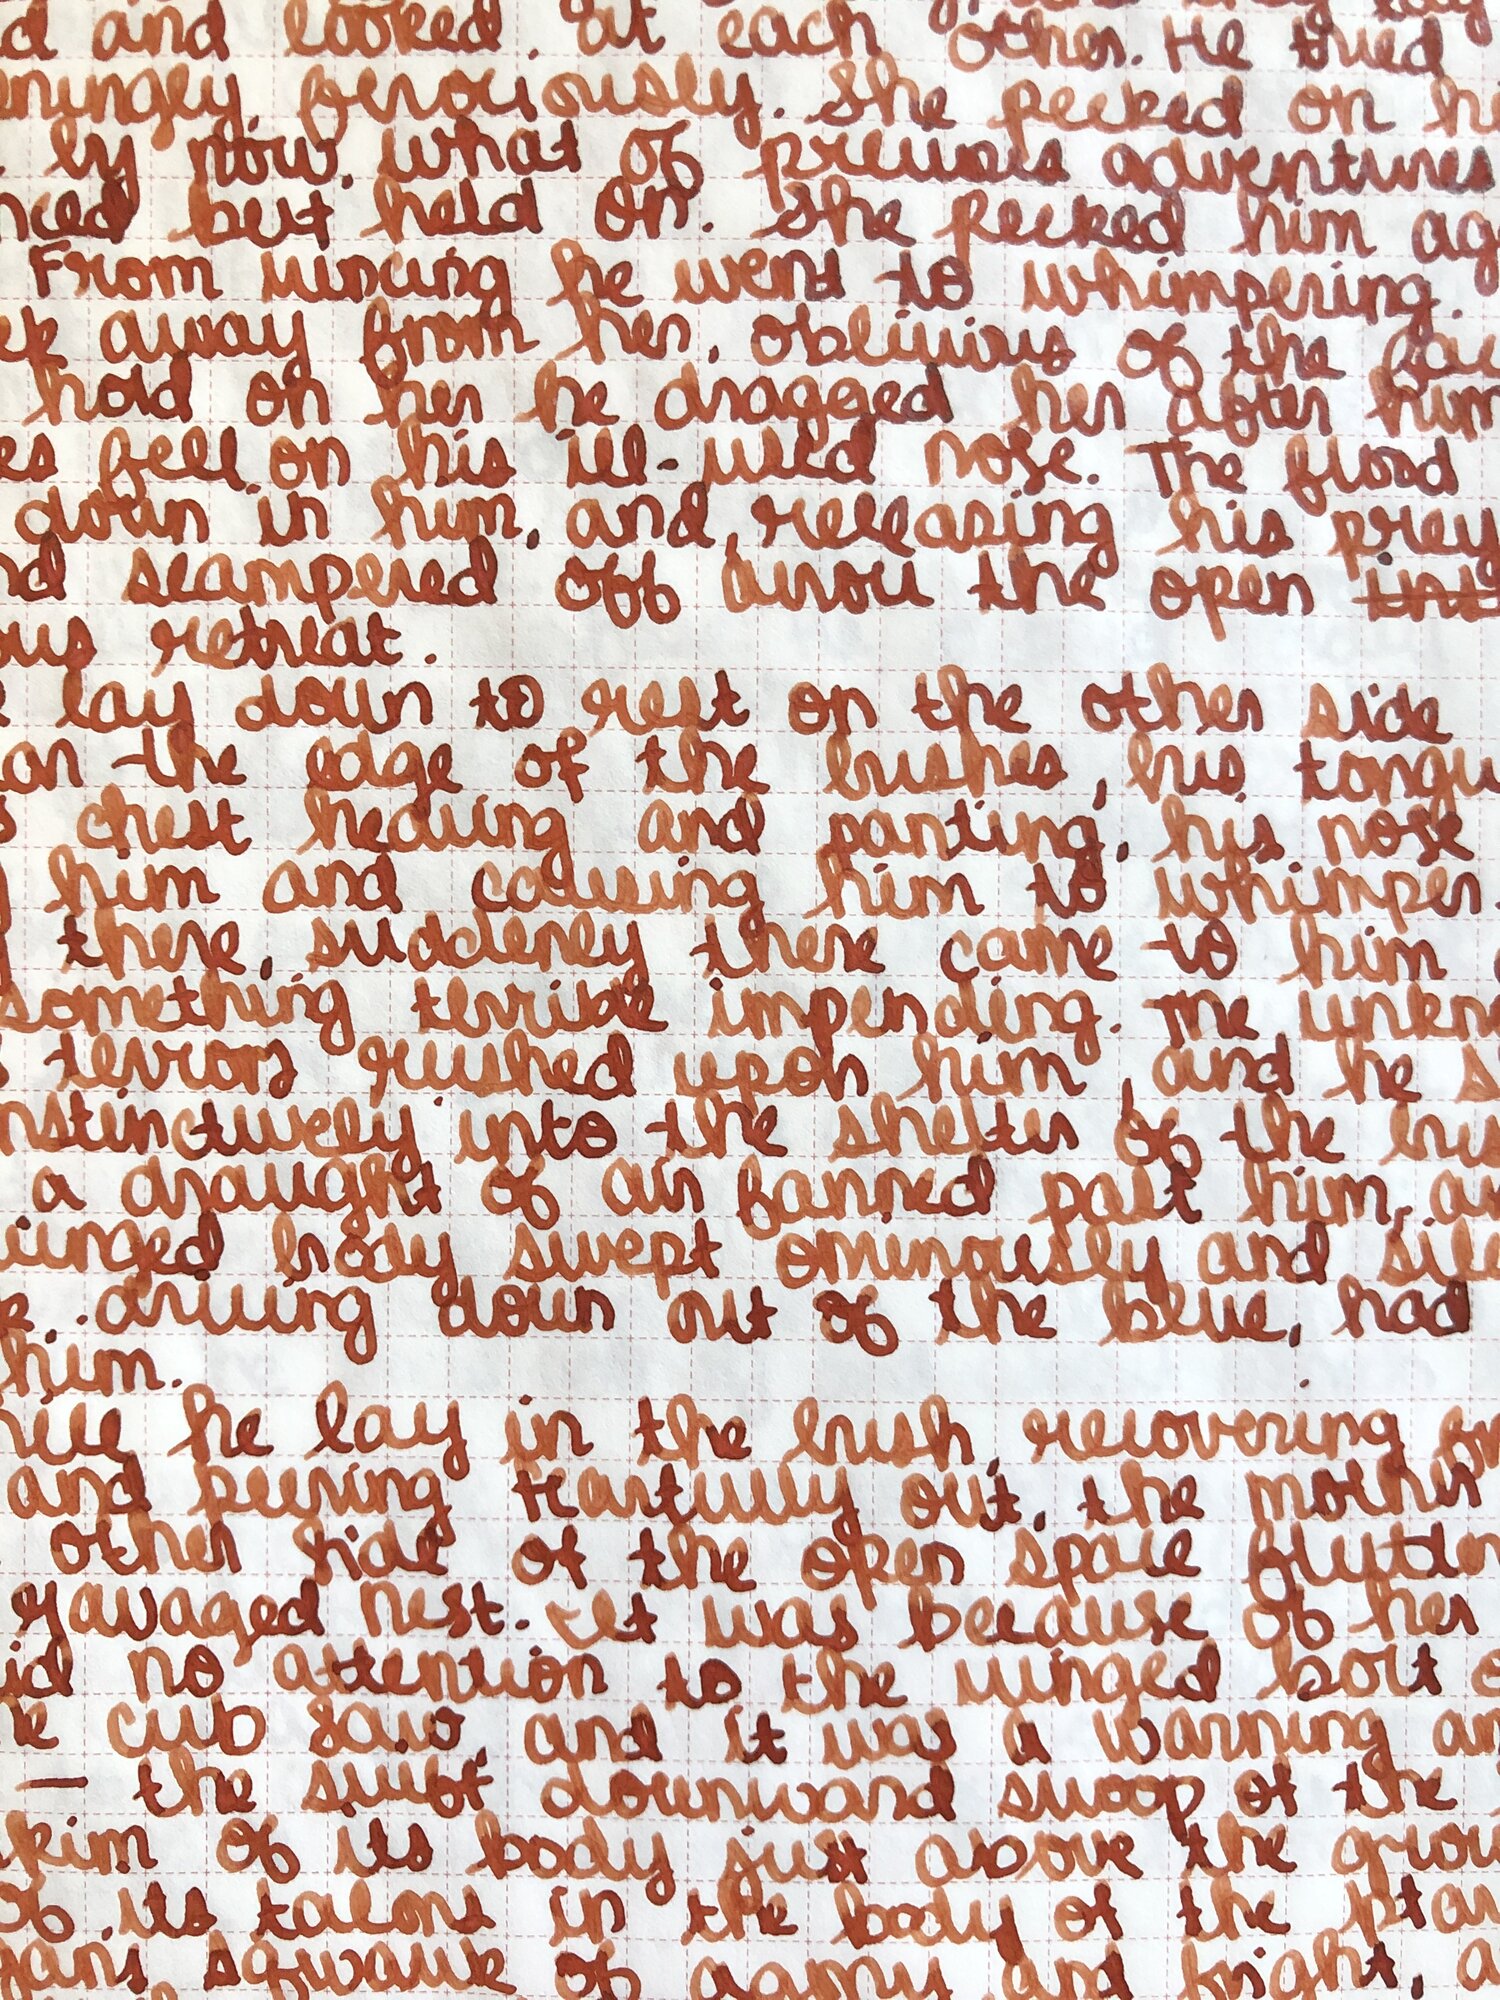 d and looked at each other. He tried
ningly, ferociously. She pecked on h
by now, what of previous adventures
nced but held on. She pecked him ag
From wincing he went to whimpering.
ck away from her, oblivious of the fac
hold on her he dragged her after him
es fell on his ill-used nose. The flood
down in him, and, releasing his prey
nd scampered off across the open
ous retreat.
lay down to rest on the other side
on the edge of the bushes, his tongu
s chest heaving and panting, his nose
him and causing him to whimper.
there, suddenly there came to him
something terrible impending. The unkn
s terrors rushed upon him, and he s
nstinctively into the shelter of the bu
a draught of air fanned past him, an
inged body swept ominously and sile
k, driving down out of the blue, had
him.
hile he lay in the bush recovering fr
and peering fearfully out, the mother
other side of the open space flutter
ravaged nest. It was because of her
id no attention to the winged bolt o
e cub saw, and it was a warning an
— the swift downward swoop of the
skim of its body just above the grou
of its talons in the body of the ptar
gan's squawk of agony and fright, a